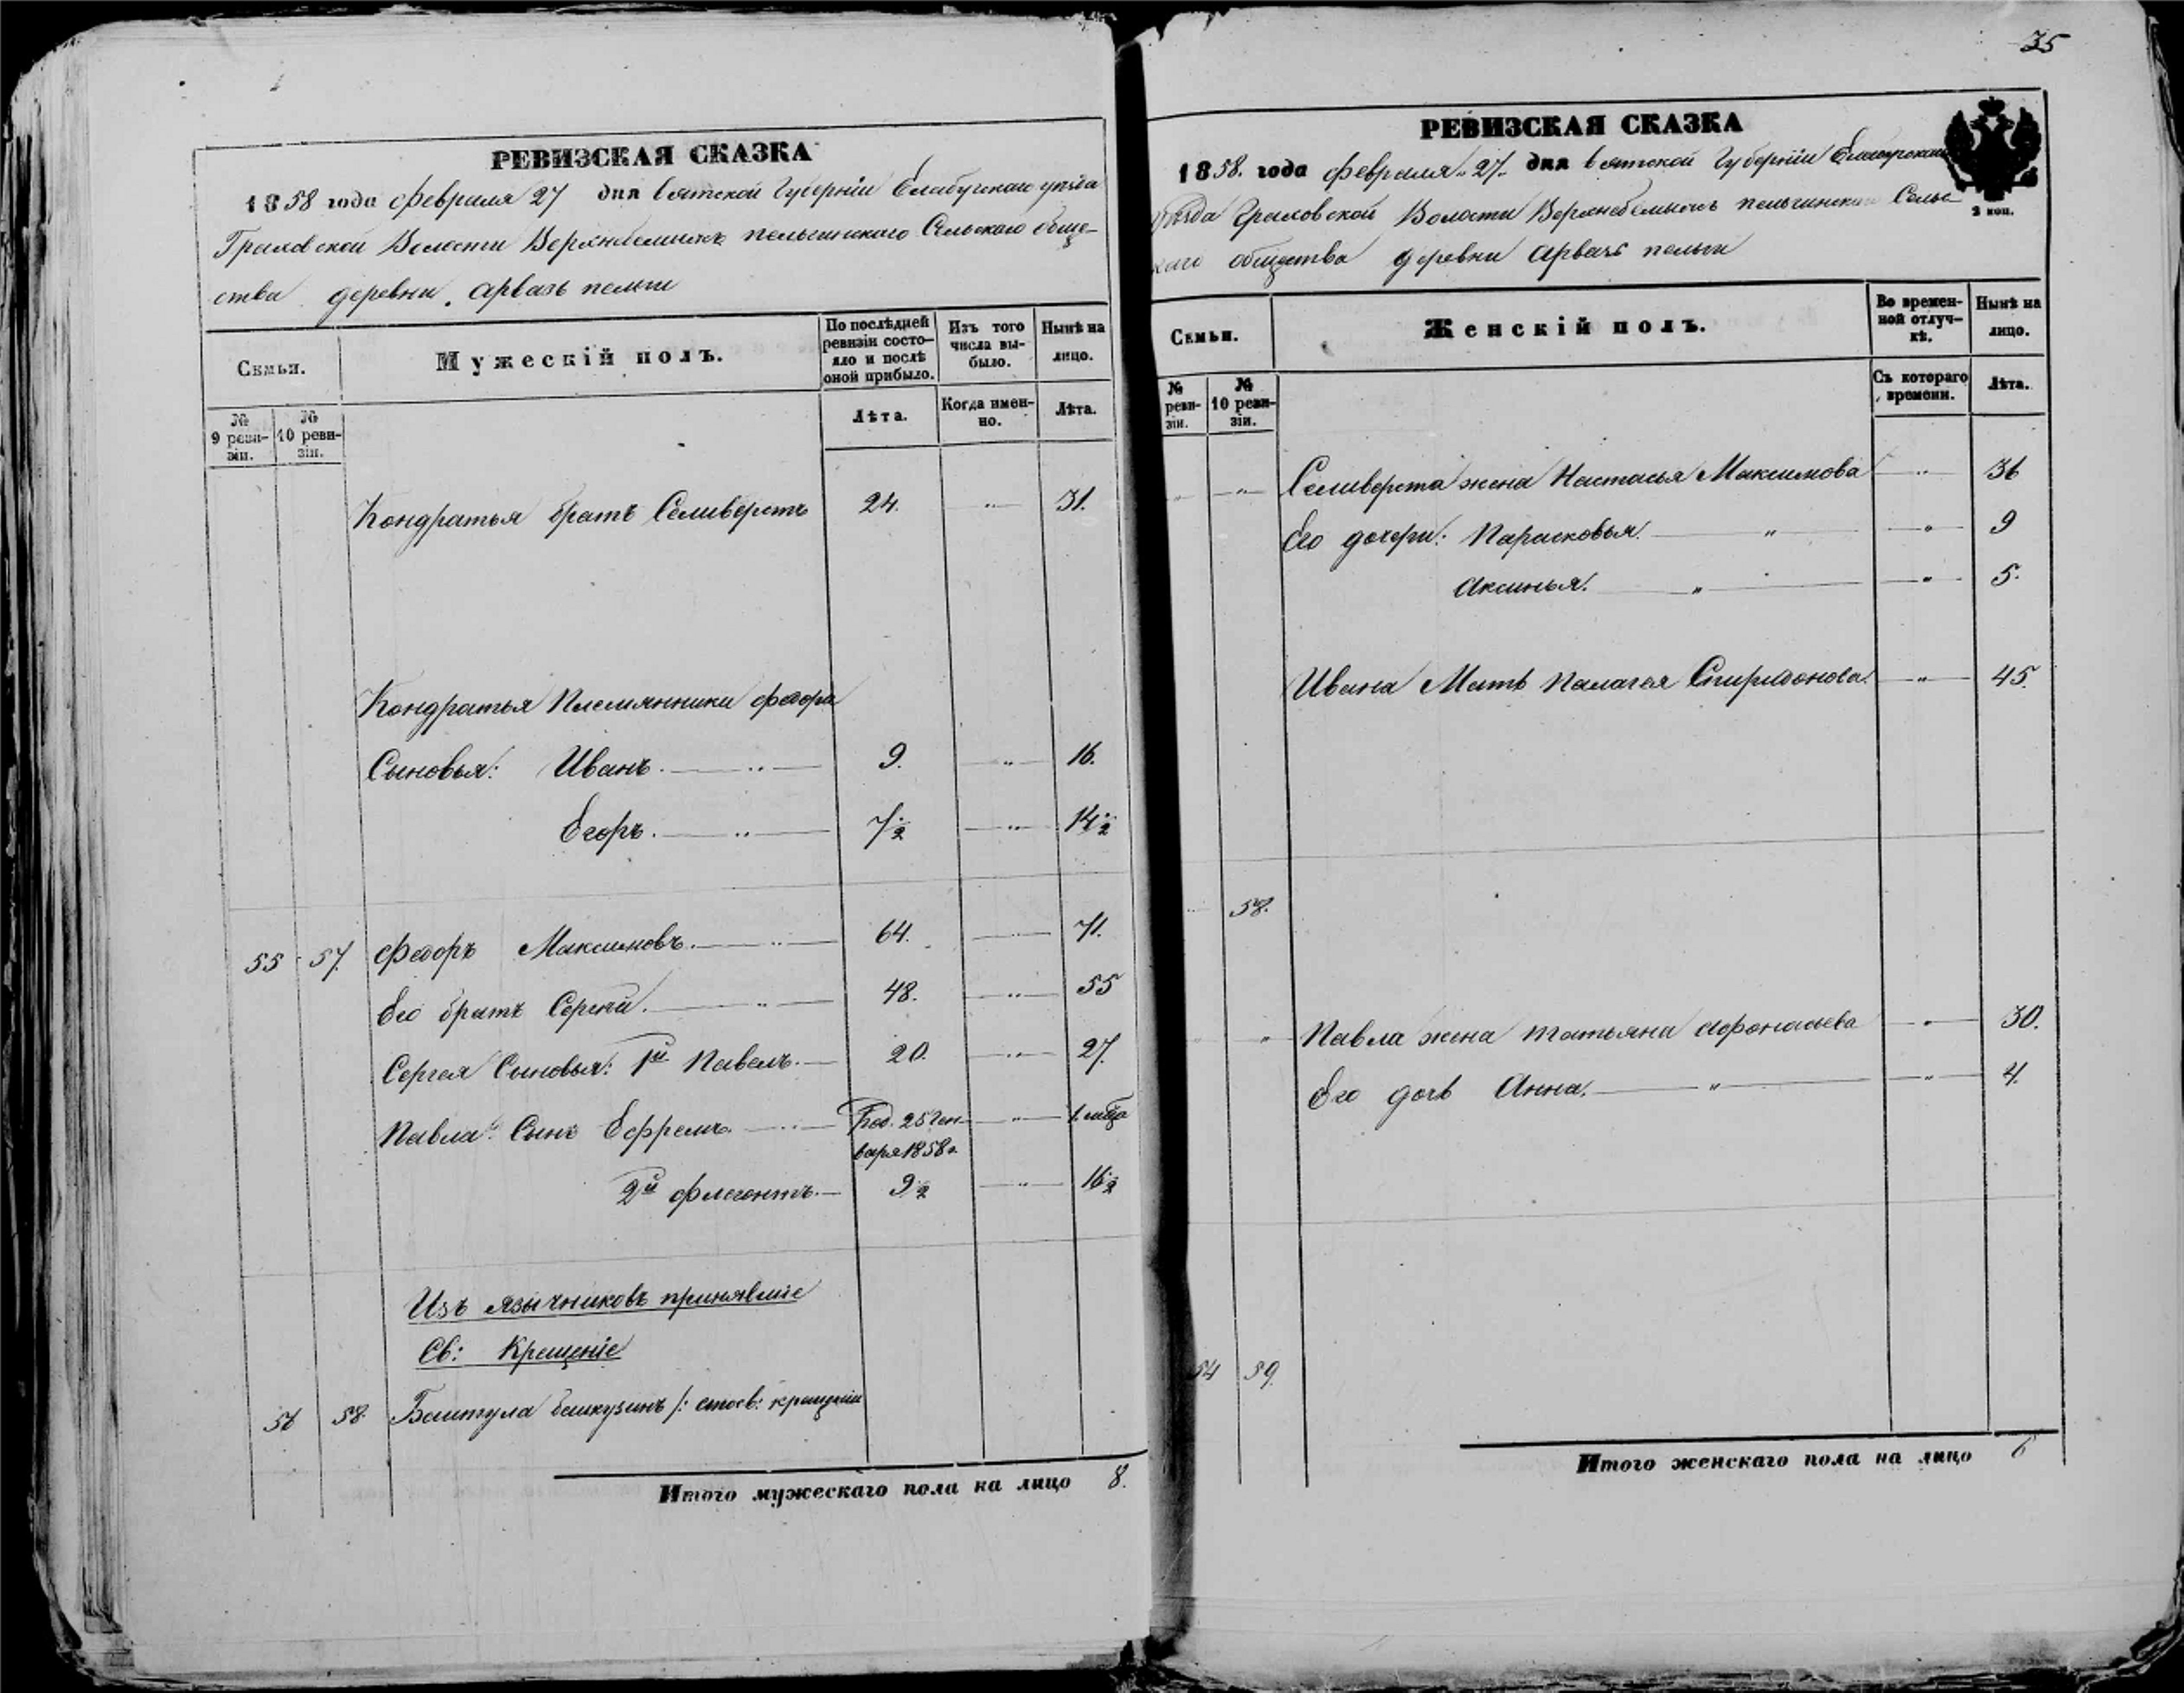 35
РЕВИЗСКАЯ СКАЗКА
1858 года февраля 27 дня Вятской Губерніи Елабугскаго уѣзда
Граховской Волости пельгинскаго Сельскаго обще-
ства деревни Арвазь пельги
Семьи.
Мужескій полъ.
По послѣдней ревизіи состо-яло и послѣ оной прибыло.
Изъ того числа вы-было.
Нынѣ на лицо.
№ 9 реви-зіи.
№ 10 реви-зіи.
Лѣта.
Когда имен-но.
Лѣта.
Кондратья братъ Селиверстъ 24. " 31.
Кондратья Племянники Федора
Сыновья: Иванъ. " 9. " 16.
Егоръ. " 7½ " 14½
55 57. Федоръ Максимовъ. " 64. " 71.
Его братъ Сергѣй. " 48. " 55
Сергея Сыновья: 1й Павелъ. 20. " 27.
Павла Сынъ Ефремъ. " Род. 25 Ген- " 1. мѣца
варя 1858 г.
2й Флегонтъ. 9½ " 16½
Изъ язычниковъ принявшіе
Св: Крещеніе
56 58. Баитула /: св: крещеніи
Итого мужескаго пола на лицо 8.
РЕВИЗСКАЯ СКАЗКА
1858. года февраля 27 дня Вятской Губерніи
уѣзда Граховской Волости пельгинскаго Сельс-
каго общества деревни Арвазь пельги
2 коп.
Семьи.
Женскій полъ.
Во времен-ной отлуч-кѣ.
Нынѣ на лицо.
№ реви-зіи.
№ 10 реви-зіи.
Съ котораго времени.
Лѣта.
" " Селиверста жена Настасья Максимова " 36
Его дочери: Парасковья. " " 9
Аксинья. " " 5.
Ивана Мать Палагея Спиридонова. " 45.
58.
" Павла жена Татьяна Афонасьева " 30.
Его дочь Анна. " " 4.
54 59.
Итого женскаго пола на лицо 6